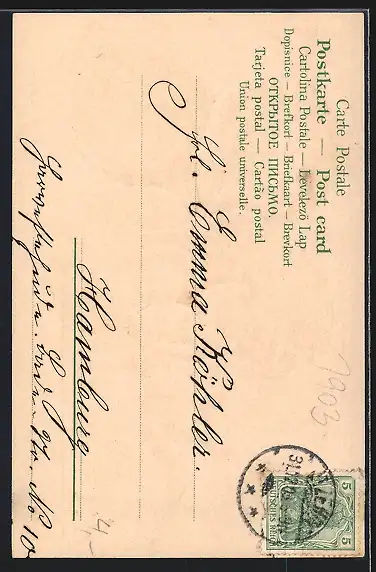 Carte Postale
Postkarte — Post card
Cartolina Postale — Levelező Lap
Dopisnice — Brefkort — Briefkaart — Brevkort
ОТКРЫТОЕ ПИСЬМО.
Tarjeta postal — Cartão postal
Union postale universelle.
Emma Köhler.
Hamburg
No 10
1903.
4,-
5
5
DEUTSCHES REICH